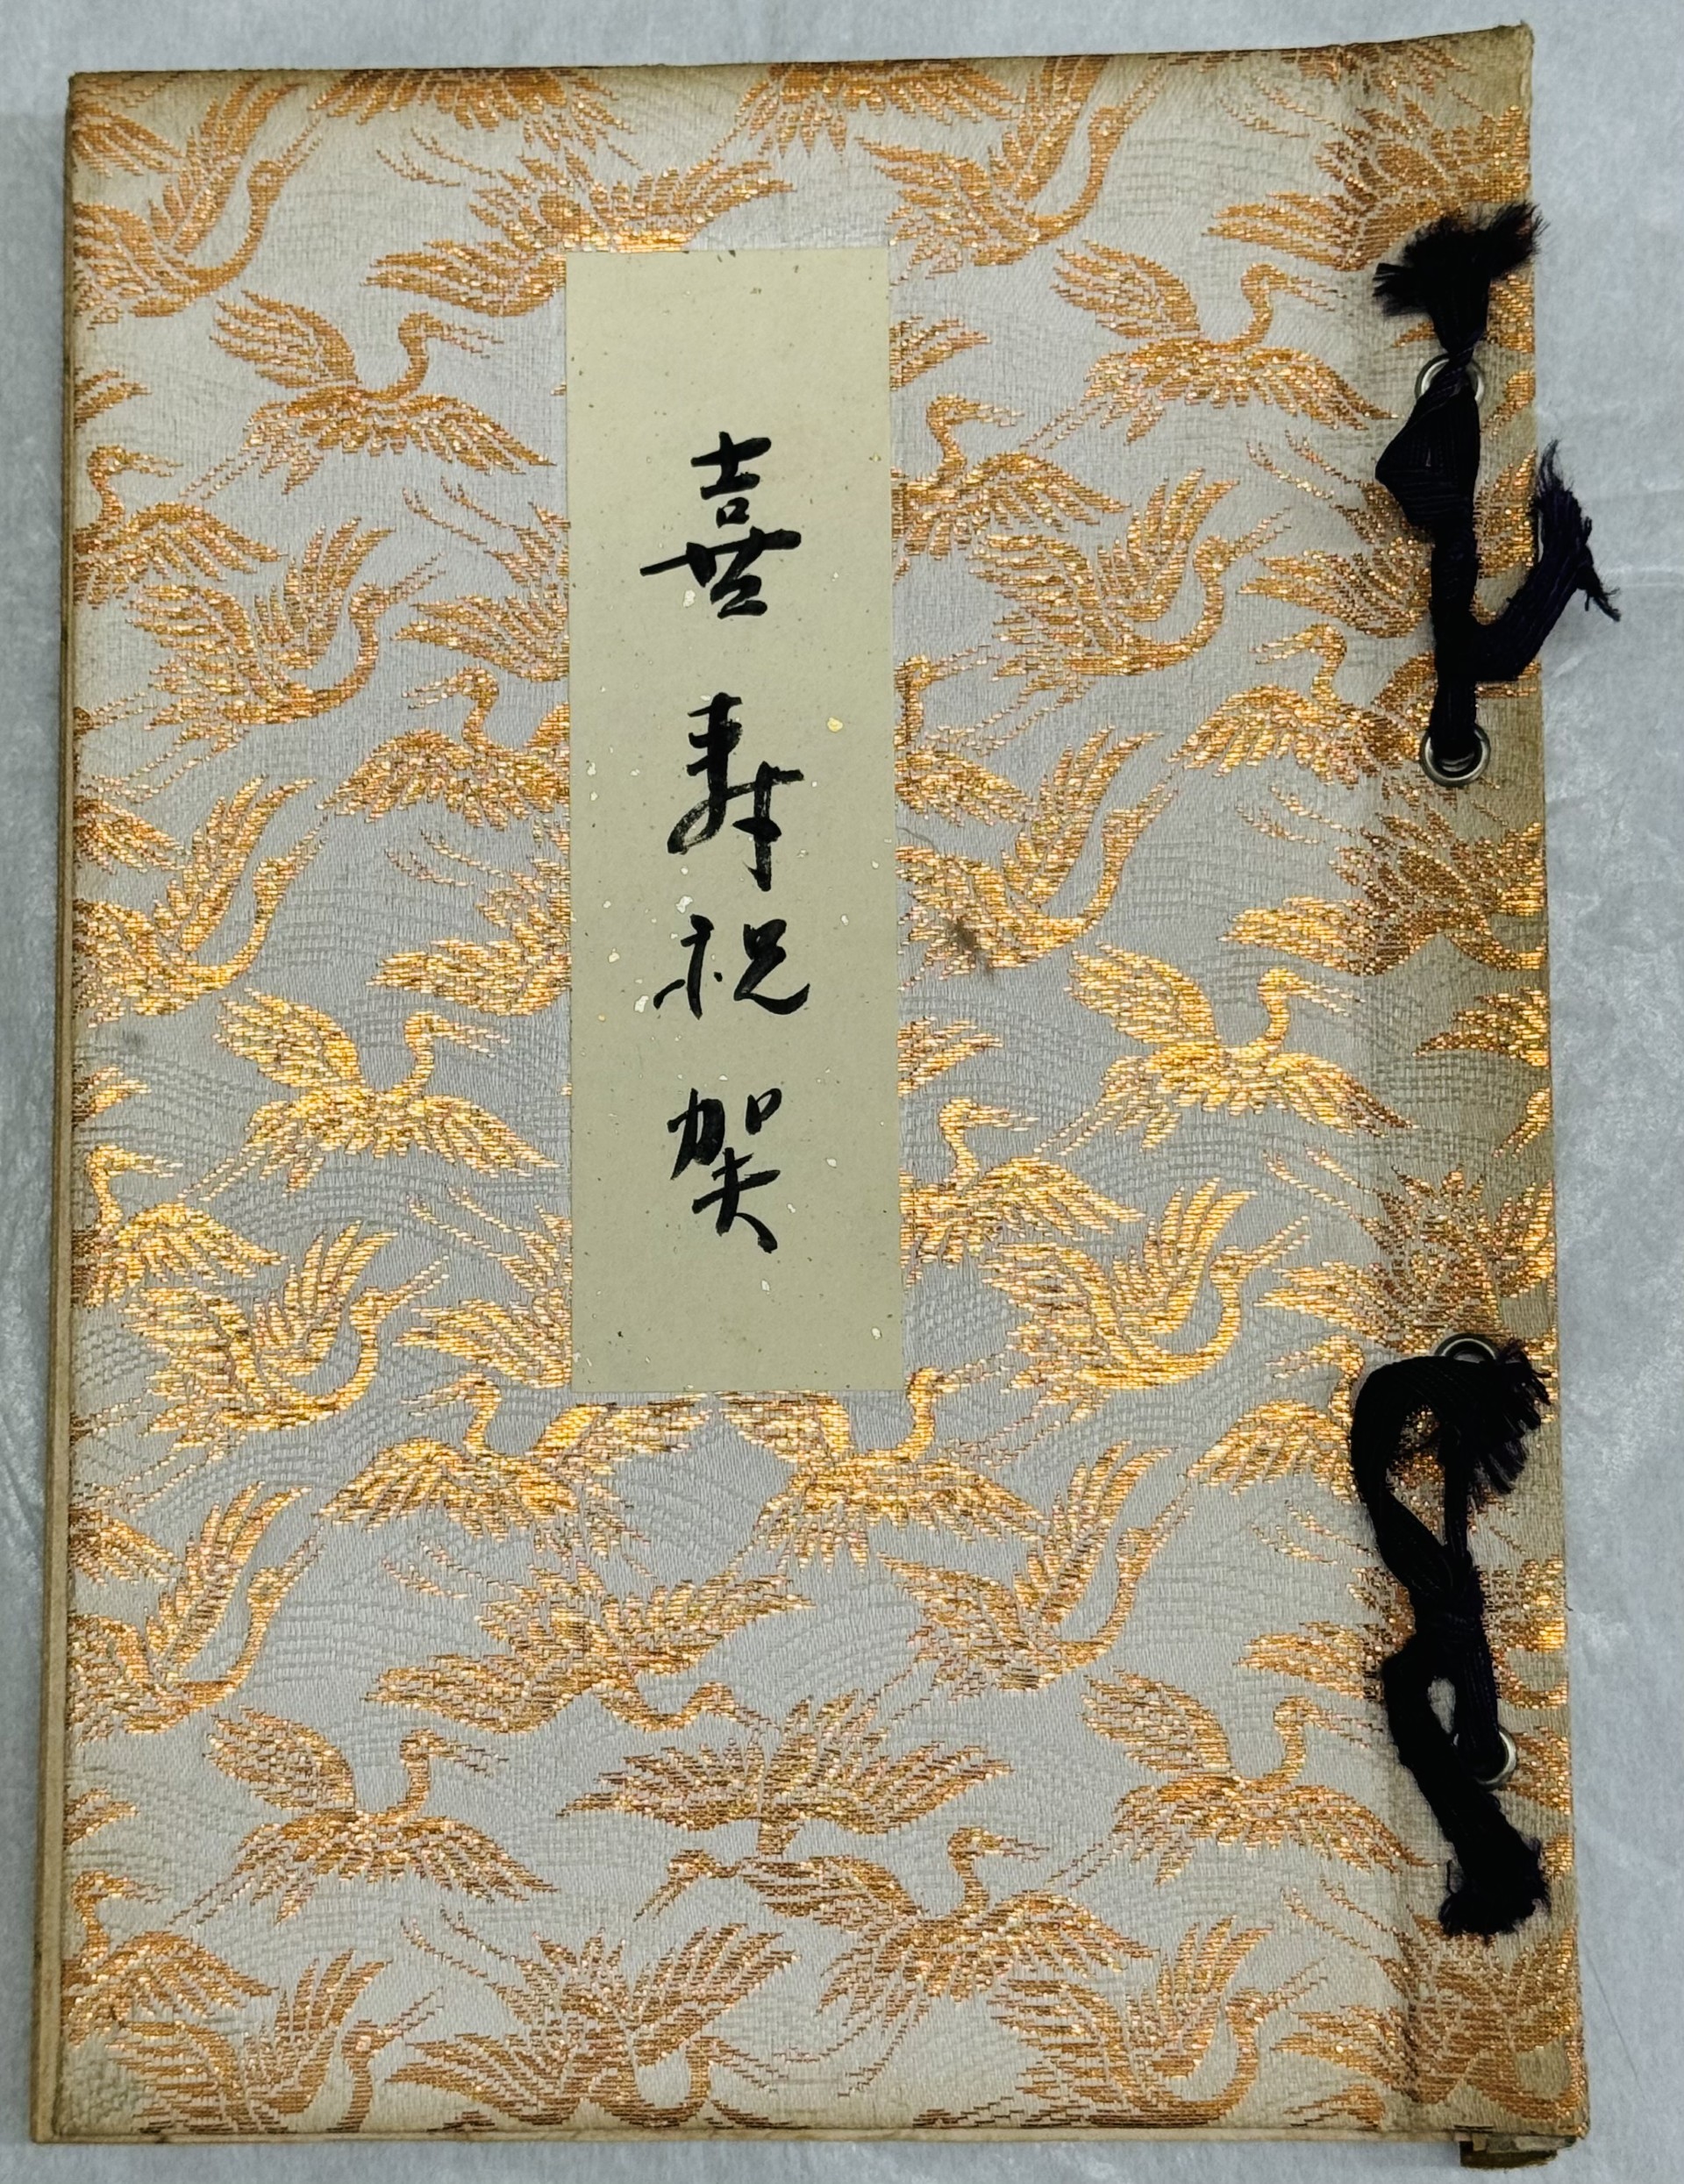 喜寿祝賀